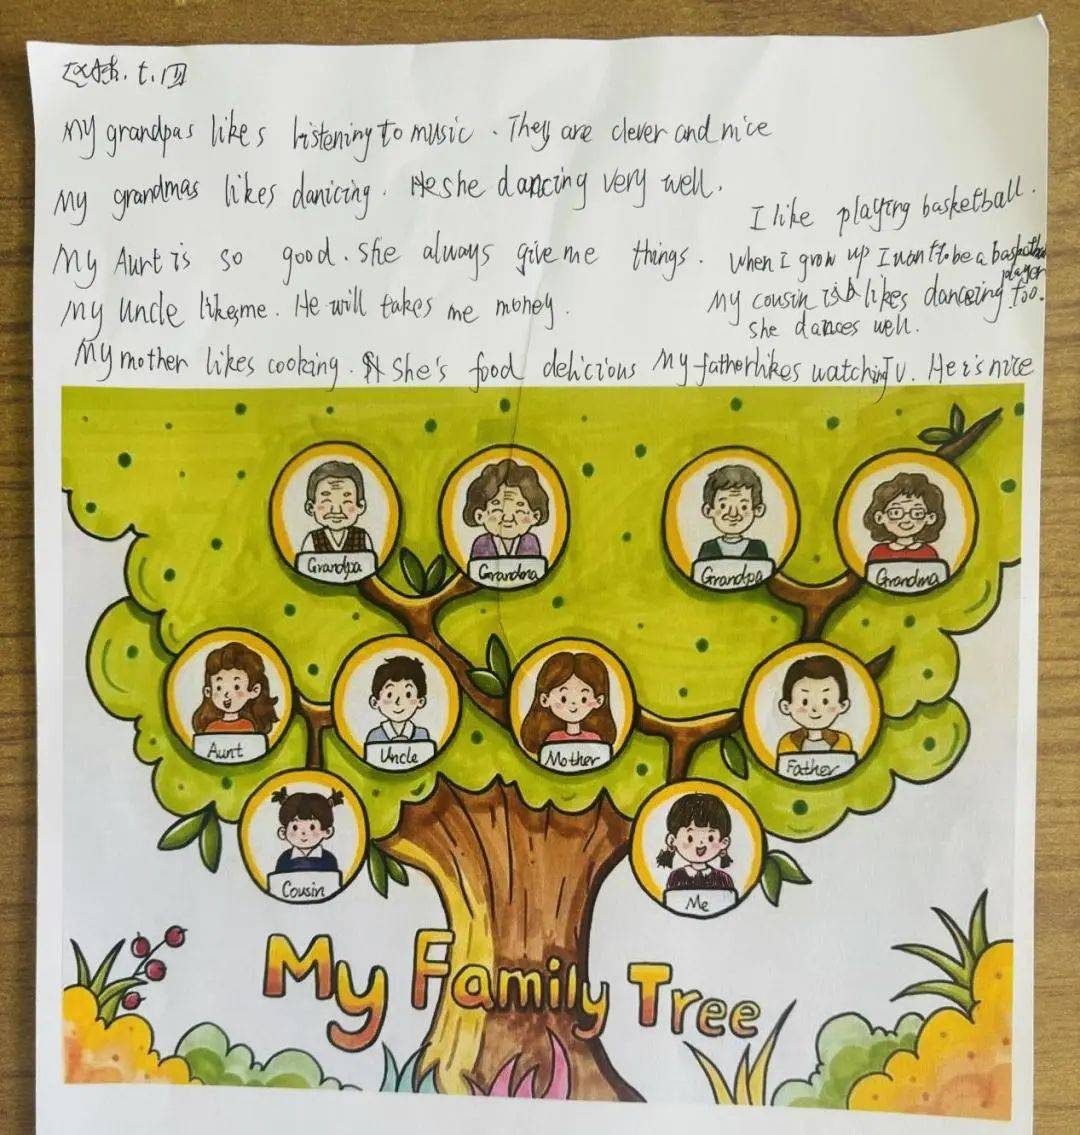 t.四
My grandpas likes listening to music. They are clever and nice
My grandmas likes danicing. she dancing very well.
My Aunt is so good. she always give me things.
My Uncle likes me. He will takes me money.
I like playing basketball.
When I grow up I want to be a basketball
player
My cousin is likes danceing too.
she dances well.
My mother likes cooking. She's food delicious My father likes watching TV. He is nice
Grandpa Grandma Grandpa Grandma
Aunt Uncle Mother Father
Cousin Me
My Family Tree